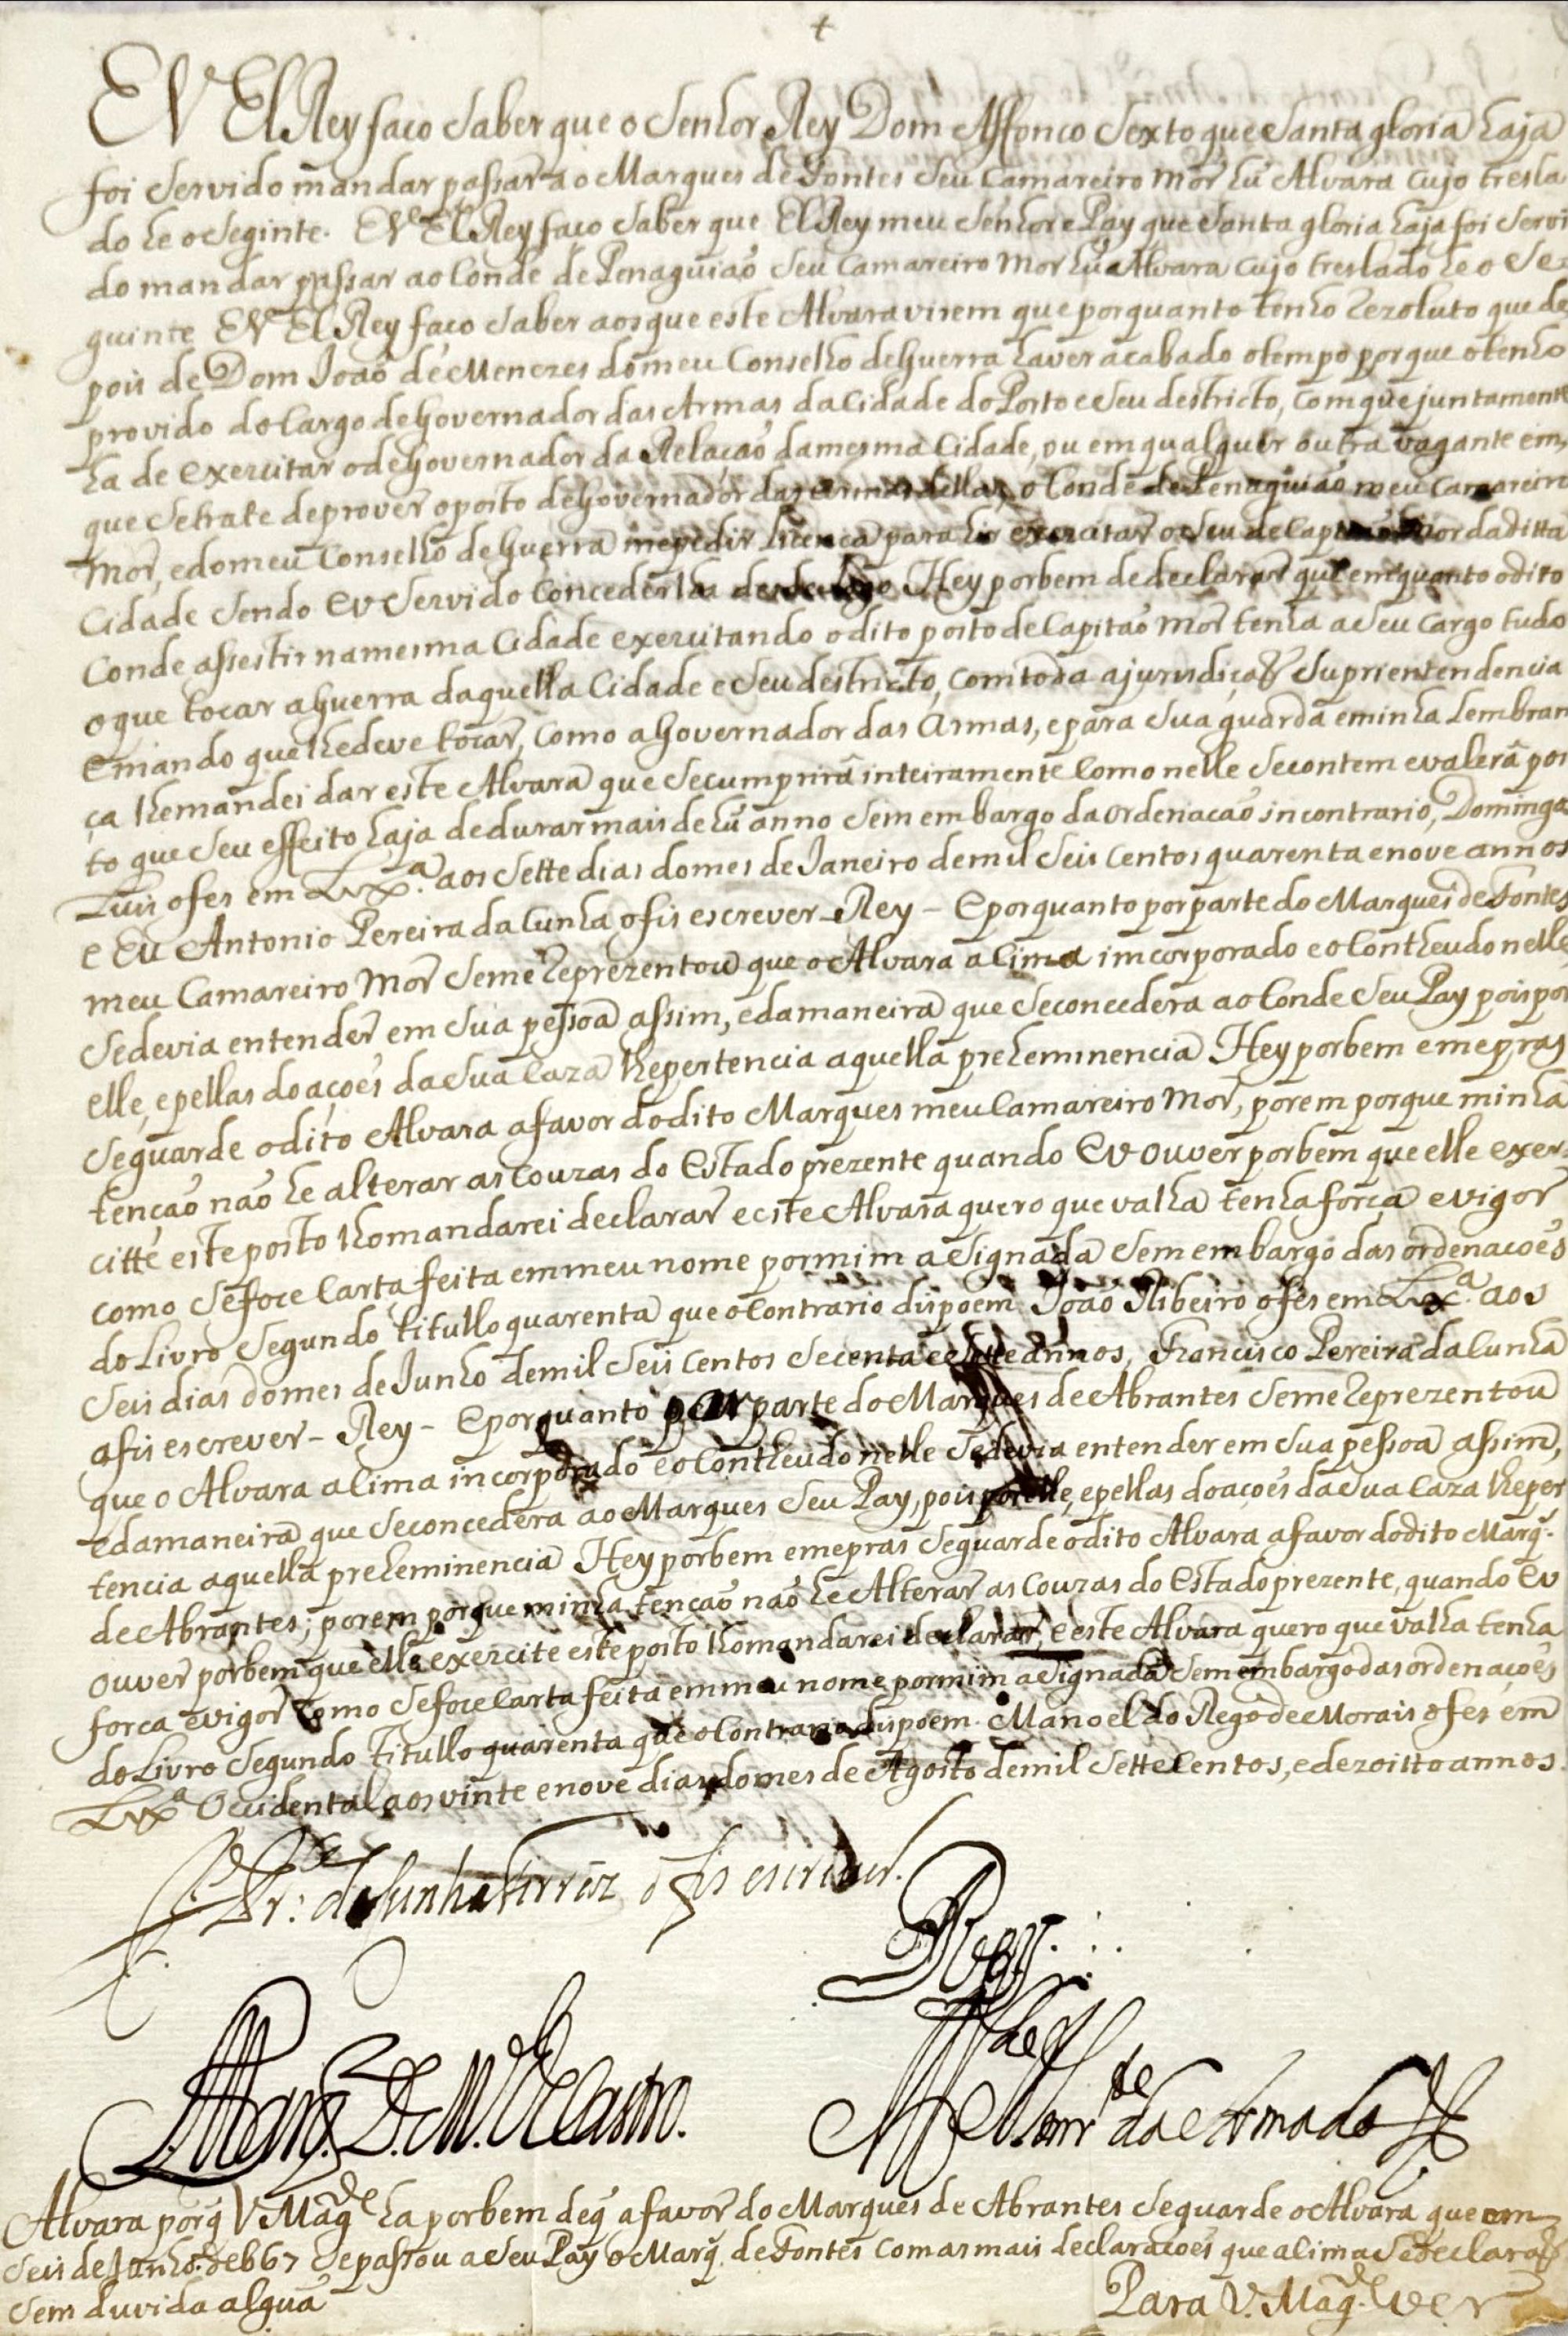 +
EV El Rey faço saber que o senhor Rey Dom Affonco sexto que santa gloria haja
foi servido mandar passar ao Marques de Fontes seu Camareiro Mor hũ Alvara cujo tresla
do he o seginte. EV El Rey faço saber que El Rey meu senhor e Pay que santa gloria haja foi servi
do mandar passar ao Conde de Penaguiaõ seu Camareiro Mor hũ Alvara cujo treslado he o se=
guinte EV El Rey faço saber aos que este Alvara virem que porquanto tenho rezoluto que de
pois de Dom Joaõ de Menezes do meu Conselho de Guerra haver acabado o tempo porque o tenho
provido do Cargo de Governador das Armas da Cidade do Porto e seu destricto, com que juntamente
ha de exercitar o de Governador da Relacaõ da mesma Cidade, ou em qualquer outra vagante em,
que se trate de prover o posto de Governador das armas dellas, o Conde de Penaguiaõ meu Camareiro
Mor, e do meu Conselho de Guerra me pedir licença para hir exercitar o seu de Capitaõ Mor da ditta
Cidade sendo Eu servido Conceder lha Hey por bem de declarar que emquanto o dito
Conde assestir na mesma Cidade exercitando o dito posto de Capitaõ Mor tenha a seu Cargo tudo
o que tocar a Guerra daquella Cidade e seu destricto, com toda a jurisdiçaõ superientendencia
e mando que lhe deve tocar, como a Governador das Armas, e para sua guarda e minha Lembran
ça lhe mandei dar este Alvara que se cumprirâ inteiramente Como nelle se contem e valerâ pos
to que seu effeito haja de durar mais de hũ anno sem embargo da ordenacaõ in contrario, Domingos
Luis o fes em Lxª. aos sette dias do mes de Janeiro de mil seis centos quarenta e nove annos
e Eu Antonio Pereira da Cunha o fis escrever - Rey - E porquanto por parte do Marques de Fontes
meu Camareiro Mor se me reprezentou que o Alvara a Cima imcorporado e o Contheudo nelle
se devia entender em sua pessoa assim, e da maneira que se concedera ao Conde seu Pay pois por
elle, e pellas doações da sua Caza lhe pertencia aquella prehemminencia Hey por bem e me pras
se guarde o dito Alvara a favor do dito Marques meu Camareiro Mor, porem porque minha
tencaõ naõ he alterar as Couzas do Estado prezente quando Ev ouver por bem que elle exer=
citte este posto lho mandarei declarar e este Alvara quero que valha tenha força e vigor
como se foce Carta feita em meu nome por mim asignada sem embargo das ordenacoẽs
do Livro segundo titullo quarenta que o Contrario dispoem Joaõ Ribeiro o fes em Lxª. aos
seis dias do mes de Junho de mil seis Centos secenta e sette annos, Francisco Pereira da Cunha
a fis escrever - Rey - E porquanto por parte do Marques de Abrantes se me reprezentou
que o Alvara a Cima incorporado e o Contheudo nelle se devia entender em sua pessoa assim,
e da maneira que se concedera ao Marques seu Pay, pois por elle, e pellas doaçoẽs da sua Caza lhe per
tencia aquella preheminencia Hey por bem e me pras se guarde o dito Alvara a favor do dito Marq̃.
de Abrantes; porem porque minha tencaõ naõ he Alterar as Couzas do Estado prezente, quando Ev
ouver por bem que elle exercite este posto lho mandarei declarar, e este Alvara quero que valha tenha
forca e vigor Como se foce Carta feita em meu nome por mim asignada sem embargo das ordenaçoẽs
do Livro segundo Titullo quarenta que o Contrario dispoem. Manoel do Rego de Morais o fes em
Lxª Occidental aos vinte e nove dias do mes de Agosto de mil sette Centos, e dezoitto annos.
da Cunha o fis escrever.
Rey
Marq̃. D. M. de Castro.
Alvara porq̃ V. Magde ha por bem de q̃ a favor do Marques de Abrantes se guarde o Alvara que em
seis de Junho de 667 se passou a seu Pay o Marq̃. de Fontes com as mais declaracoẽs que a Cima se declara
sem duvida alguã
Para V. Magde. ver